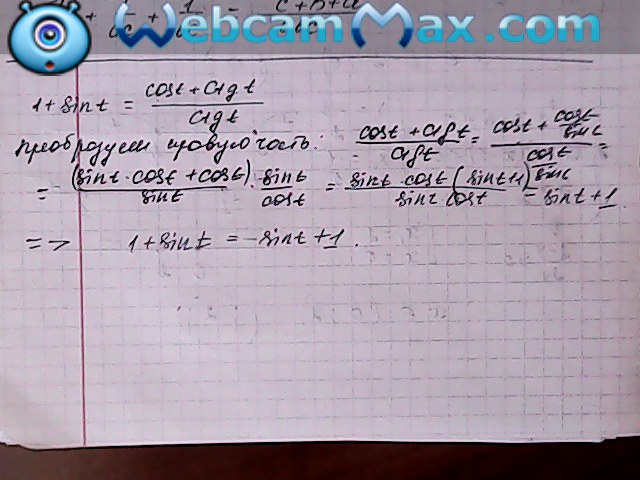 WebcamMax.com
1 + sint = (cost + ctgt) / ctgt
преобразуем правую часть: (cost + ctgt) / ctgt = (cost + cost/sint) / (cost/sint) =
= (sint · cost + cost) / sint · sint / cost = sint · cost (sint + 1) / sint cost = sint + 1
=> 1 + sint = sint + 1.